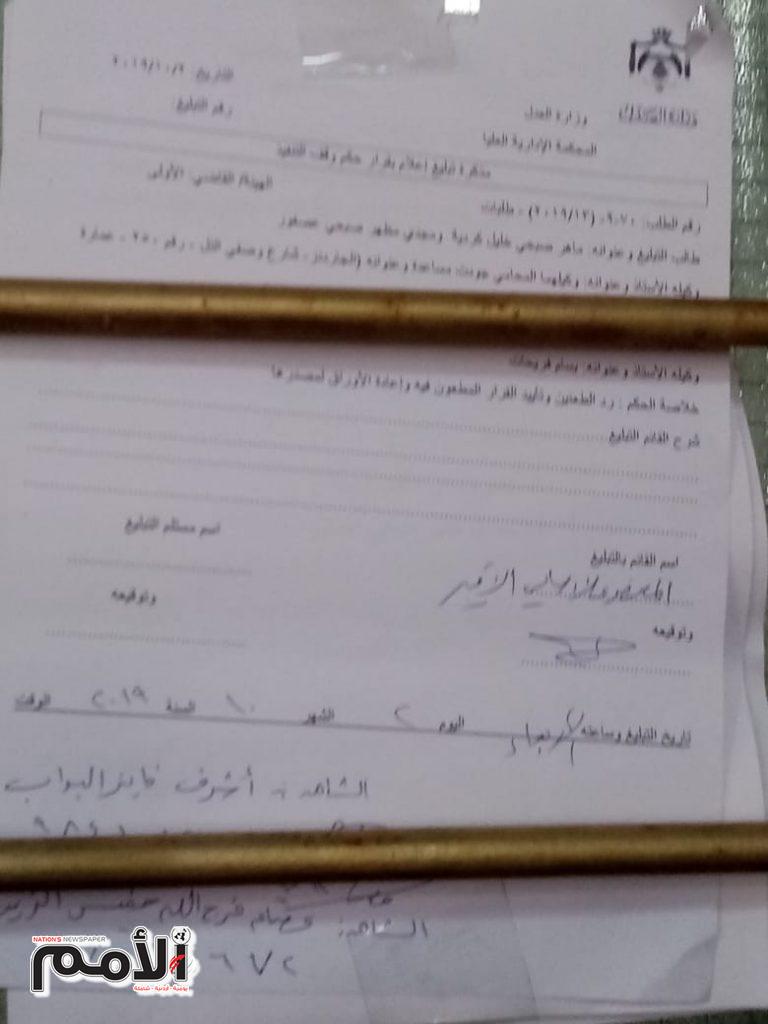 التاريخ: ٢٠١٩/١٠/٢
وزارة العدل
رقم التبليغ:
وزارة العدل
المحكمة الإدارية العليا
مذكرة تبليغ إعلام بقرار حكم وقف التنفيذ
الهيئة/ القاضي: الأولى
رقم الطلب: (٢٠١٩/١٢) - طلبات
طالب التبليغ وعنوانه: ماهر صبحي خليل كردية ومجدي مظهر صبحي عصفور
وكيله الأستاذ وعنوانه: وكيلهما المحامي جودت مساعدة وعنوانه (الجاردنز - شارع وصفي التل - رقم ٢٥٠ - عمارة
وكيله الأستاذ وعنوانه: بسام فريحات
خلاصة الحكم : رد الطعنين وتأييد القرار المطعون فيه وإعادة الأوراق لمصدرها
شرح القائم التبليغ
اسم القائم بالتبليغ
اسم مستلم التبليغ
وتوقيعه
وتوقيعه
تاريخ التبليغ وساعته الأربعاء اليوم ٢ الشهر ١٠ السنة ٢٠١٩ الوقت
الشاهد: أشرف فايز البواب
الشاهد: عصام فرج الله
٦٧٢
NATION'S NEWSPAPER
الأمم
يومية - أردنية - شاملة